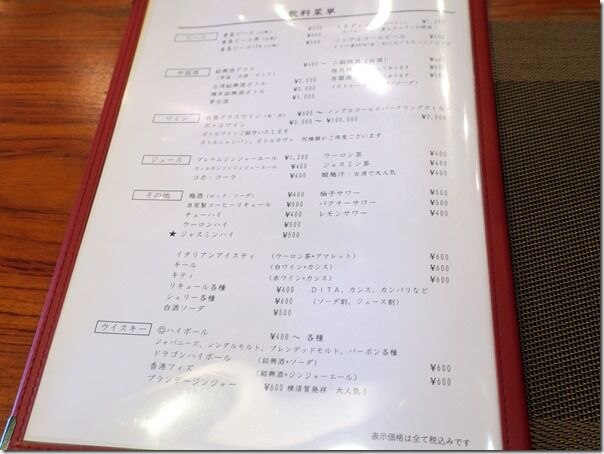 飲料菜単
ビール
青島ビール ¥500 ノンアルコールビール
中国酒 紹興酒グラス ¥400～
台湾紹興酒ボトル ¥2,500
¥3,000
ワイン 日替グラスワイン ¥600～ ノンアルコールスパークリングボトル
ボトルワイン ¥2,000～¥100,000 ¥2,500
ボトルワインご紹介いたします
ボトルシャンパン、ボトルカヴァ 何種類かご用意ございます
ジュース プレナムジンジャーエール ¥1,200 ウーロン茶 ¥400
ウィルキンソンジンジャーエール ¥400 ジャスミン茶 ¥400
コカ・コーラ ¥400 酸梅汁：台湾で大人気 ¥400
その他 梅酒（ロック・ソーダ） ¥400 柚子サワー ¥500
自家製コーヒーリキュール ¥500 パクチーサワー ¥500
チューハイ ¥400 レモンサワー ¥400
ウーロンハイ ¥500
★ ジャスミンハイ ¥500
イタリアンアイスティ （ウーロン茶・アマレット） ¥600
キール （白ワイン・カシス） ¥600
キティ （赤ワイン・カシス） ¥600
リキュール各種 ¥600 DITA、カシス、カンパリなど
シェリー各種 ¥600 （ソーダ割、ジュース割）
白酒ソーダ ¥500
ウイスキー ◎ハイボール ¥400～ 各種
ジャパニーズ、シングルモルト、ブレンデッドモルト、バーボン各種
ドラゴンハイボール （紹興酒・ソーダ） ¥600
香港フィズ （紹興酒・ジンジャーエール） ¥600
ブランデージンジャー ¥600 横須賀発祥 大人気！
表示価格は全て税込みです